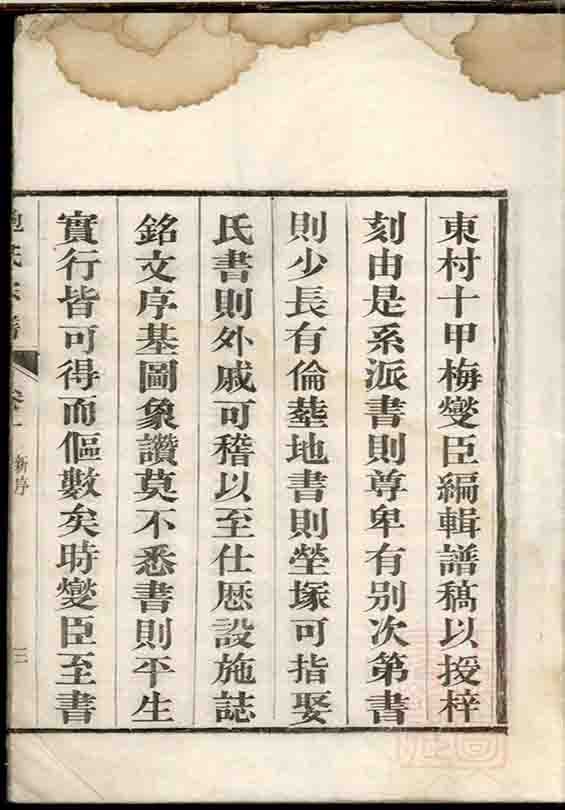 東村十甲梅燮臣編輯譜稿以授梓
刻由是系派書則尊卑有別次第書
則少長有倫塟地書則塋塚可指娶
氏書則外戚可稽以至仕歷設施誌
銘文序基圖象讚莫不悉書則平生
實行皆可得而傴數矣時燮臣至書
氏宗譜
卷一
新序
三